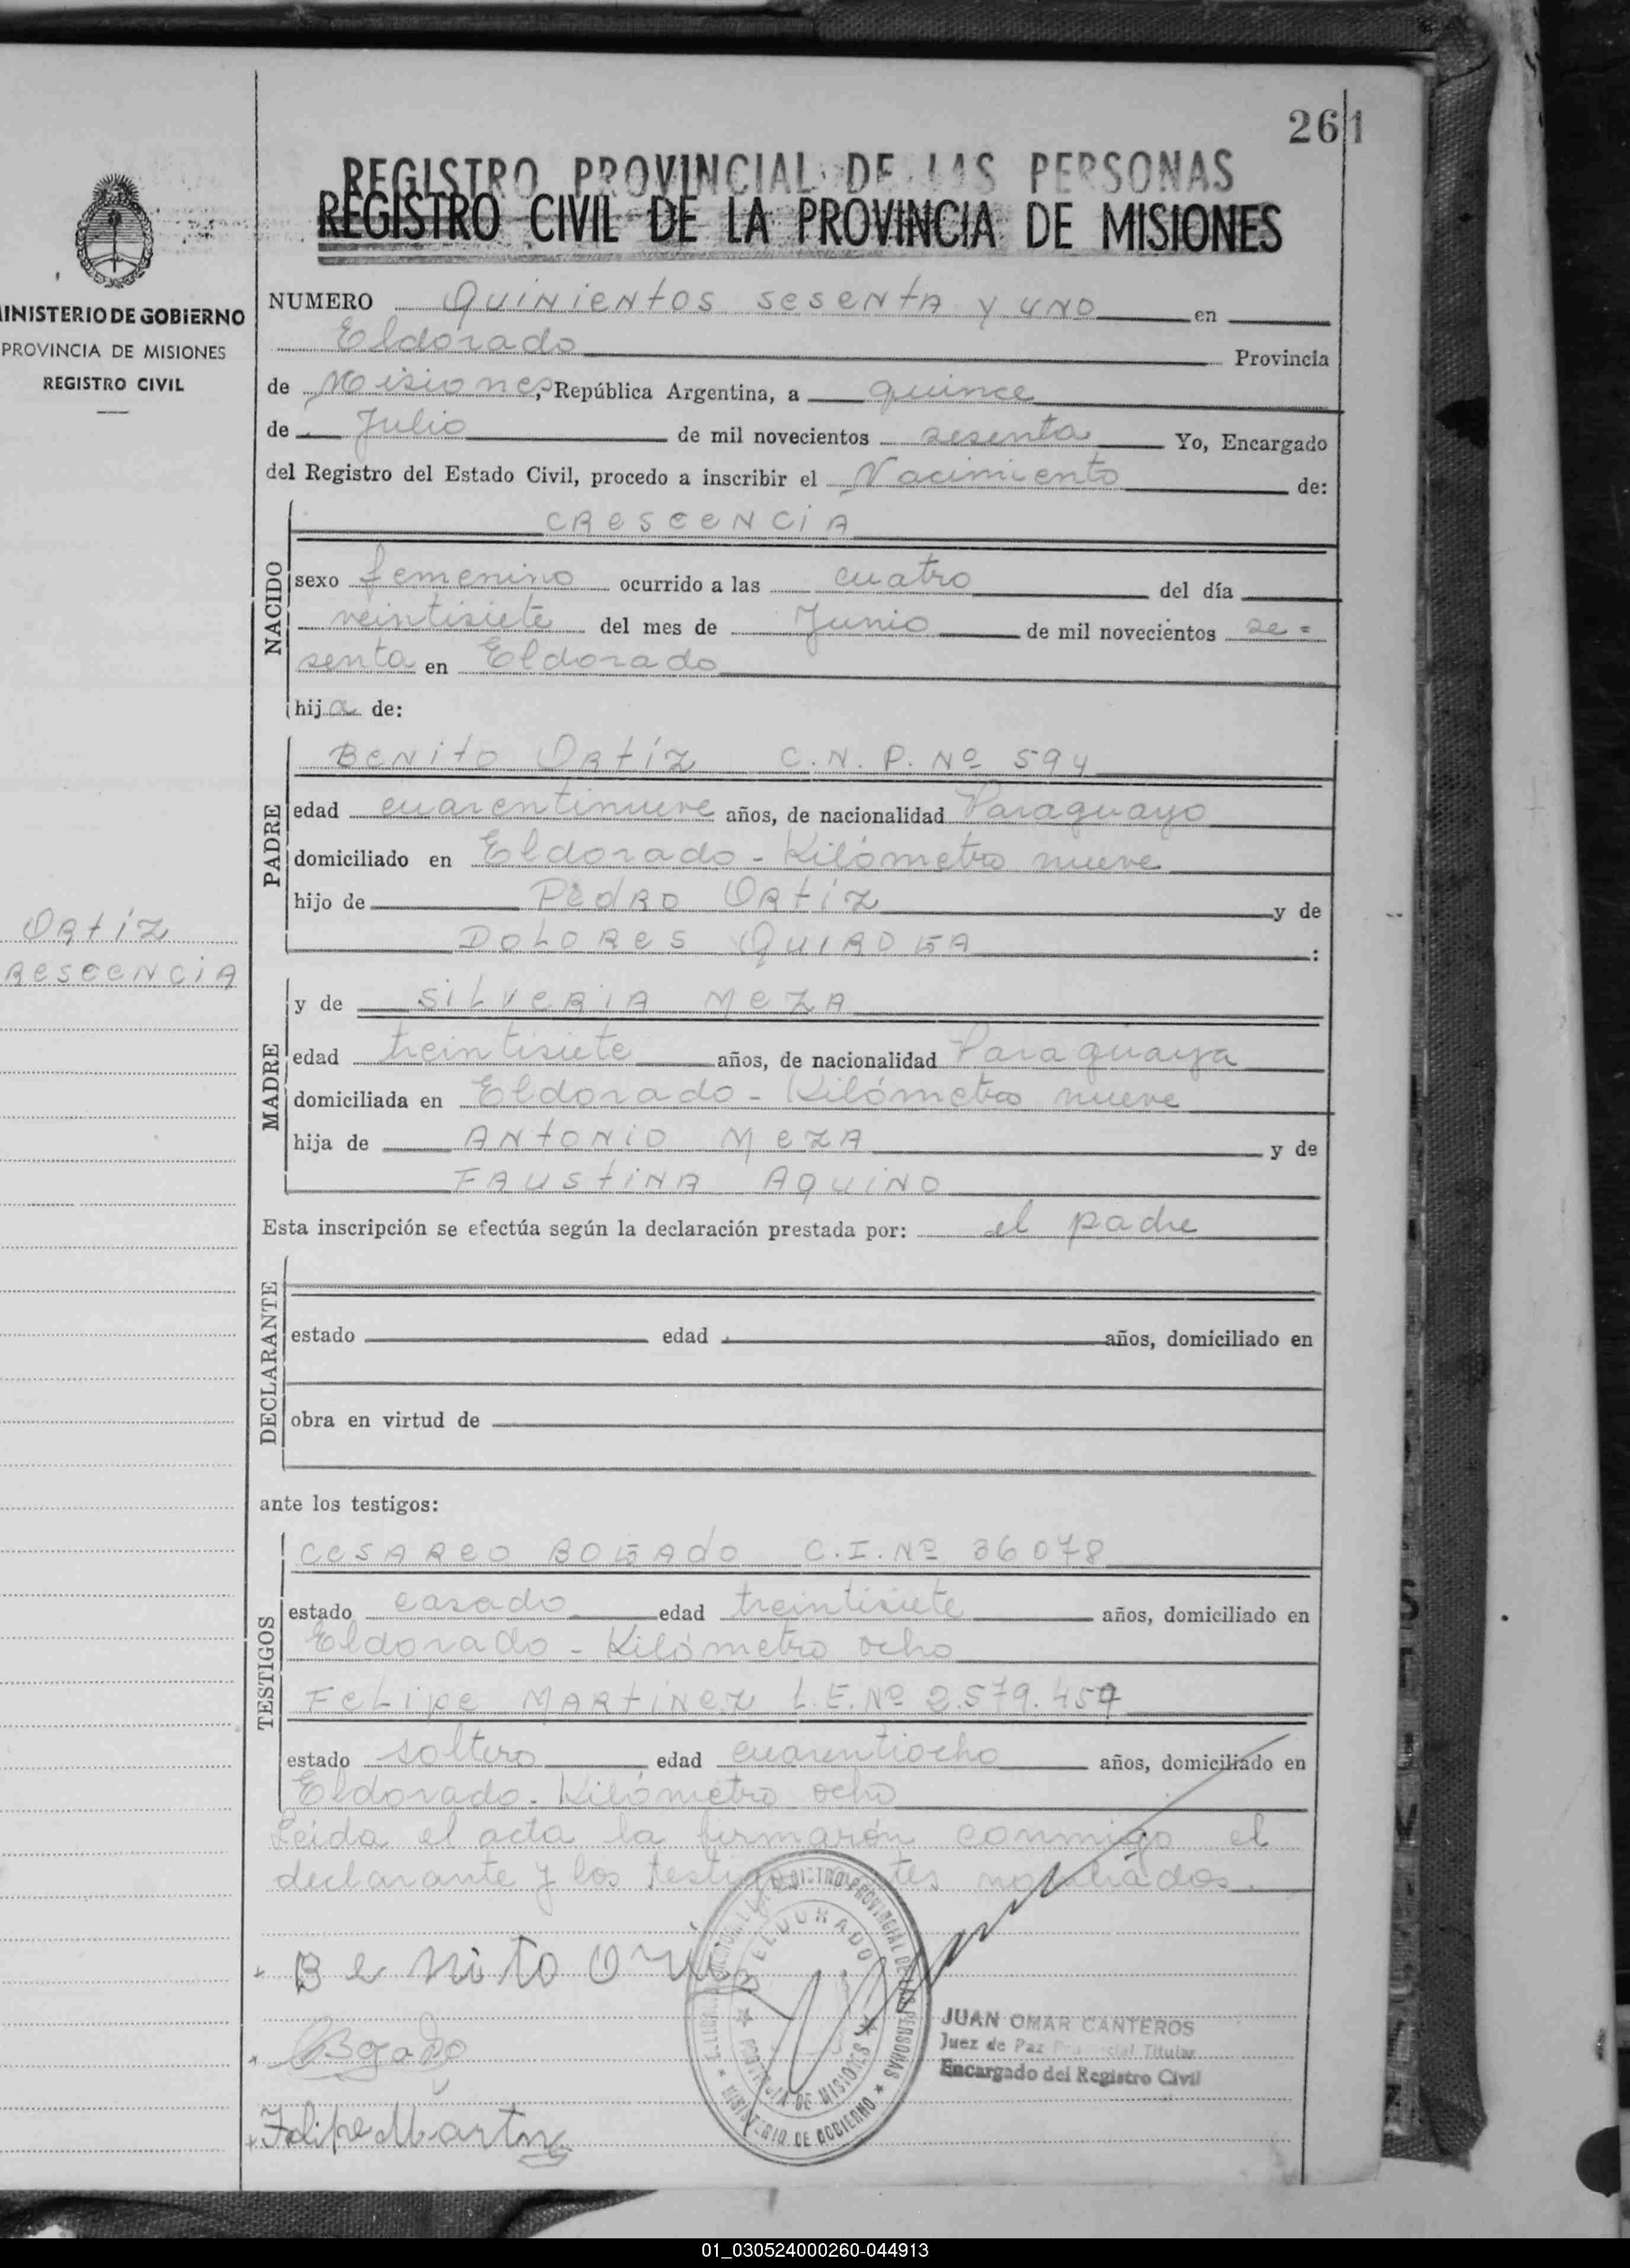 261
REGISTRO PROVINCIAL DE LAS PERSONAS
REGISTRO CIVIL DE LA PROVINCIA DE MISIONES
MINISTERIO DE GOBIERNO
PROVINCIA DE MISIONES
REGISTRO CIVIL
ORtíz
RESCENCIA
NUMERO QUINIENTOS SESENTA Y UNO en
Eldorado Provincia
de Misiones, República Argentina, a quince
de Julio de mil novecientos sesenta Yo, Encargado
del Registro del Estado Civil, procedo a inscribir el Nacimiento de:
CRESCENCIA
NACIDO
sexo femenino ocurrido a las cuatro del día
veintisiete del mes de Junio de mil novecientos se=
senta en Eldorado
hija de:
PADRE
BENITO ORTÍZ C.N.P. Nº 594
edad cuarentinueve años, de nacionalidad Paraguayo
domiciliado en Eldorado - Kilómetro nueve
hijo de PEDRO ORTÍZ y de
DOLORES QUIROGA :
MADRE
y de SILVERIA MEZA
edad treintisiete años, de nacionalidad Paraguaya
domiciliada en Eldorado - Kilómetro nueve
hija de ANTONIO MEZA y de
FAUSTINA AQUINO
Esta inscripción se efectúa según la declaración prestada por: el padre
DECLARANTE
estado edad años, domiciliado en
obra en virtud de
ante los testigos:
TESTIGOS
CESAREO BOGADO C.I. Nº 36078
estado casado edad treintisiete años, domiciliado en
Eldorado - Kilómetro ocho
FELIPE MARTINEZ L.E. Nº 2.579.457
estado soltero edad cuarentiocho años, domiciliado en
Eldorado - Kilómetro ocho
Leída el acta la firmarón conmigo el
declarante y los
Benito
DELEGACION REGISTRO PROVINCIAL DE LAS PERSONAS
ELDORADO
PROVINCIA DE MISIONES
MINISTERIO DE GOBIERNO
JUAN OMAR CANTEROS
Juez de Paz Titular
Encargado del Registro Civil
Bogado
Felipe Martinez
01_030524000260-044913